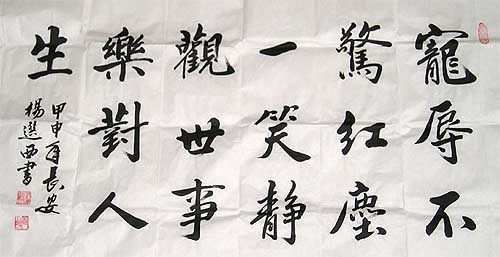 寵辱不
驚紅塵
一笑静
觀世事
樂對人
生
甲申年長安
楊選西書